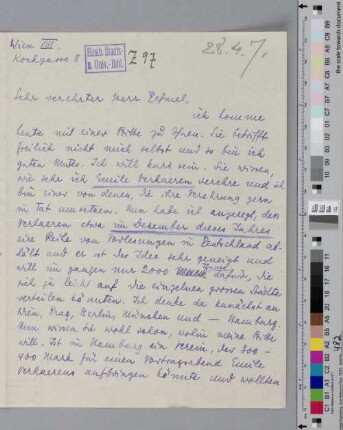 Wien VIII.
Kochgasse 8
Hamb. Staats-
u. Univ.-Bibl.
Z 97
28.4.7.
Sehr verehrter Herr Dehmel,
ich komme
heute mit einer Bitte zu Ihnen. Sie betrifft
freilich nicht mich selbst und so bin ich
guten Mutes. Ich will kurz sein. Sie wissen,
wie sehr ich Emile Verhaeren verehre und ich
bin einer von denen, die ihre Verehrung gern
in Tat umsetzen. Nun habe ich angeregt, dass
Verhaeren etwa im December dieses Jahres
eine Reihe von Vorlesungen in Deutschland ab-
hält und er ist der Idee sehr geneigt und
will im ganzen nur 2000 dafür, die
sich ja leicht auf die einzelnen grossen Städte
verteilen könnten. Ich denke da zunächst an
Wien, Prag, Berlin, München und — Hamburg.
Nun wissen Sie wohl schon, wohin meine Bitte
will. Ist in Hamburg ein Verein, der 300-
400 Mark für einen Vortragsabend Emile
Verhaerens aufbringen könnte und wollten
492